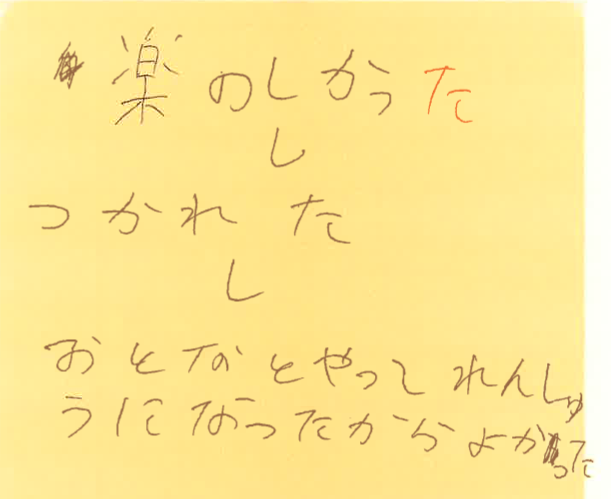 楽のしかった
し
つかれた
し
おとなとやってれんしゅ
うになったからよかった